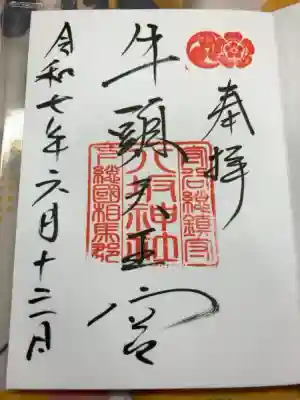 奉拝
守谷總鎮守
牛頭天王宮
八坂神社
下總國相馬郡
令和七年六月十二日